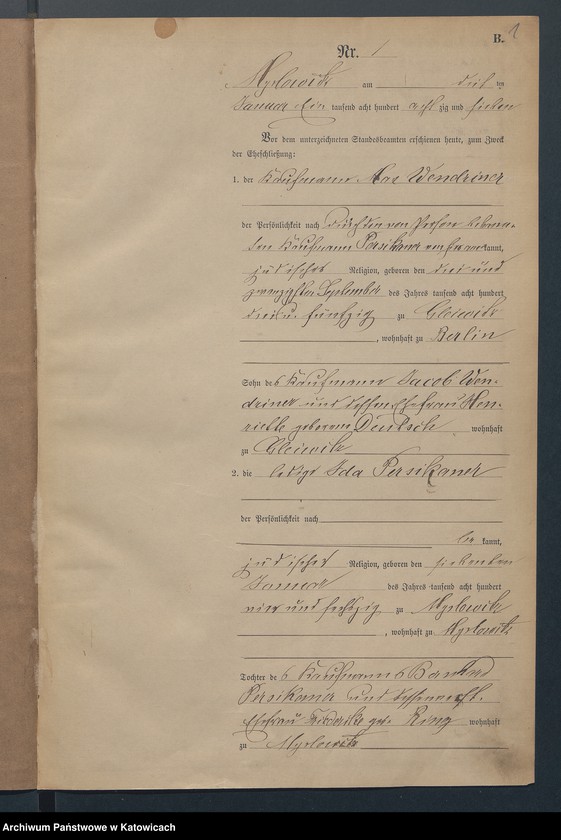 B. 1
Nr. 1
Myslowitz am drit ten
Januar Ein tausend acht hundert acht zig und sieben
Vor dem unterzeichneten Standesbeamten erschienen heute, zum Zweck
der Eheschließung:
1. der Kaufmann Max Wendriner
der Persönlichkeit nach durch den von Person
Kaufmann Persikaner kannt,
jüdischer Religion, geboren den drei und
zwanzigsten September des Jahres tausend acht hundert
drei u. fünfzig zu Gleiwitz
, wohnhaft zu Berlin
Sohn des Kaufmann Jacob Wen-
driner und dessen Ehefrau Hen-
riette geborenen Deutsch wohnhaft
zu Gleiwitz
2. die ledige Ida Persikaner
der Persönlichkeit nach
be kannt,
jüdischer Religion, geboren den siebenten
Januar des Jahres tausend acht hundert
vier und sechszig zu Myslowitz
, wohnhaft zu Myslowitz
Tochter des Kaufmanns
Persikaner und dessen
Ehefrau Friederike geb. Ring wohnhaft
zu Myslowitz
Archiwum Państwowe w Katowicach